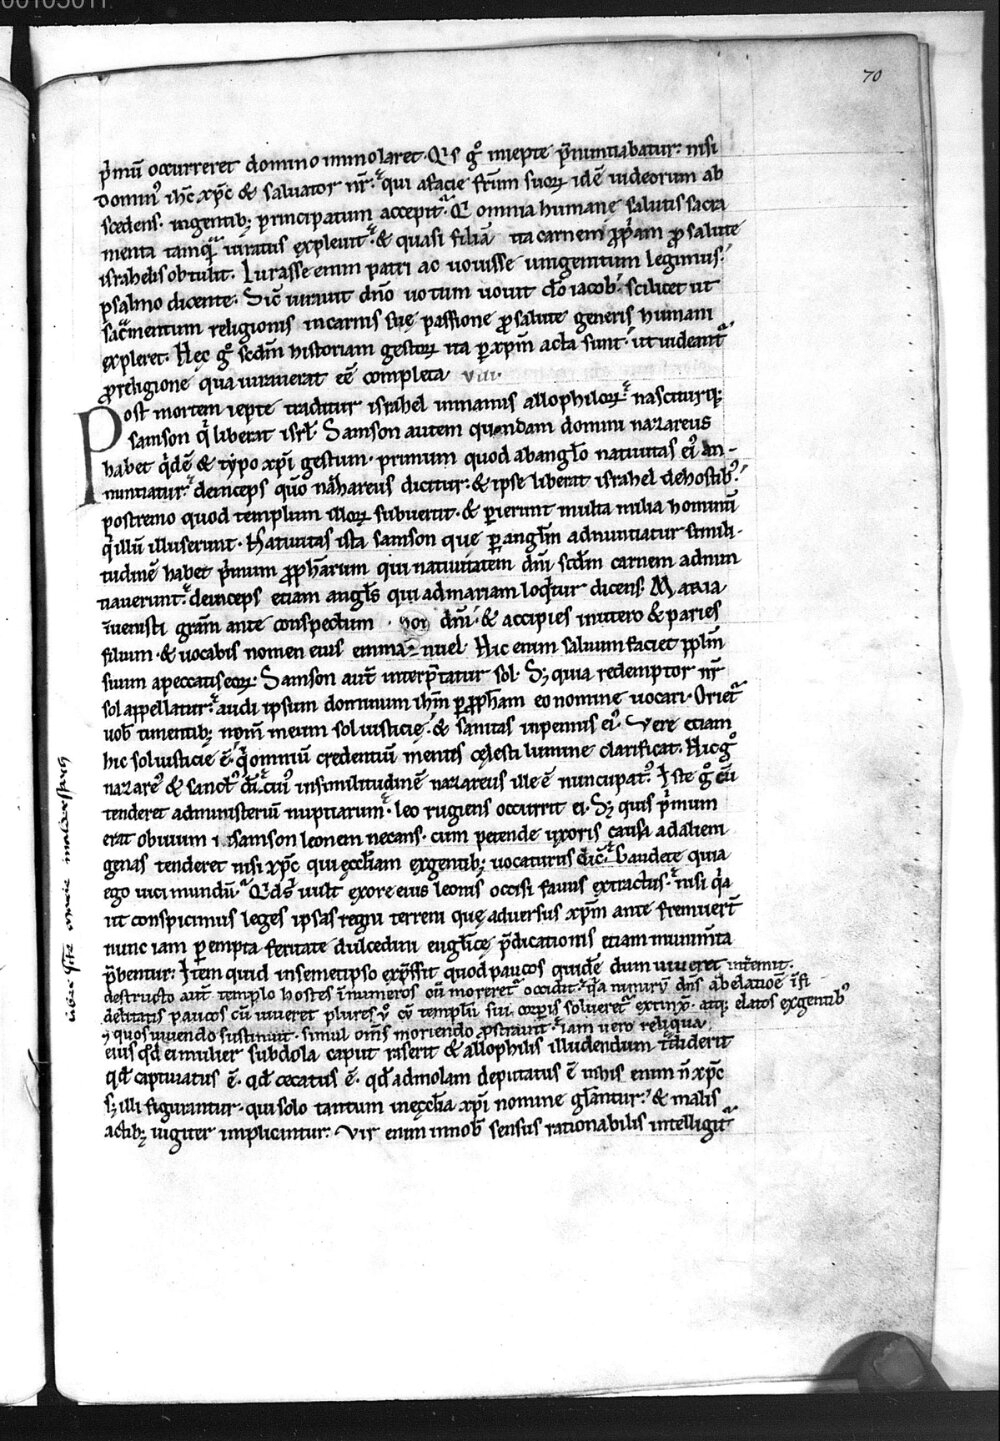 70
p̄mū occurreret domino immolaret. Q̄s gͦ iniepte p̄nuntiabatur: nisi
domin⁹ ih̄c xp̄c & saluator nr̄. qui afacie fr̄um suoꝝ idē uideorum ab
scedens. ingentib; principatum accepit. & omnia humanę salutis sacra
menta tamq̄ iuratus expleuit. & quasi filiā ita carnem ꝓp̄am ꝓ salute
israhelis obtulit. Iurasse enim patri ac uouisse unigenitum legimus.
psalmo dicente. Sic̄ iurauit dn̄o uotum uouit do iacob. scilicet ut
sac̄mentum religionis incarnis suę passione ꝓ salute generis humani
expleret. Hęc gͦ scdm̄ historiam gestoꝝ ita p̱ xp̄m acta sunt. ut uideant̄
ꝓ religione qua iurauerat eē completa viii.
Post mortem iepte traditur israhel inmanus allophiloꝝ. nasciturq;
samson q̄ liberat isrl̄. Samson autem quondam domini nazareus
habet q̄dē & typo xp̄i gestum. primum quod abanglo natiuitas ei⁹ an-
nuntiatur. deinceps quo nazareus dicitur. & ipse liberat israhel dehostib⁹.
postremo quod templum illoꝝ subuertit. & perierunt multa milia hominū
q̄ illū illuserunt. Natiuitas ista samson que p̱ anglm̄ adnuntiatur simili-
tudinē habet p̄mum ꝓphārum qui natiuitatem dn̄i scdm̄ carnem adnun
tiauerunt. deinceps etiam angls̄ qui admariam loq̄tur dicens. Maria
inuenisti gram̄ ante conspectum dn̄i. & accipies inutero & paries
filium. & uocabis nomen eius emmanuel. Hic enim saluum faciet pplm̄
suum apeccatis eoꝝ. Samson aut̄ interp̄tatur sol. S; quia redemptor nr̄
sol appellatur. audi ipsum dominum ihm̄ p̱ ꝓpham eo nomine uocari. Oriet̄
uob̄ timentib; nom̄ meum sol iusticię. & sanitas inpennis ei⁹. Vere etiam
hic sol iusticię ē. q̄ omniū credentiū mentes cęlesti lumine clarificat. Hic gͦ
nazare⁹ & sanct⁹ di. cui⁹ insimilitudinē nazareus ille ē nuncupat⁹. Iste gͦ cū
tenderet administeriū nuptiarum. leo rugiens occurrit ei. S; quis p̄mum
erat obuium i. samson leonem necans. cum petendę uxoris causa adaliem
genas tenderet nisi xp̄c qui ęccliam exgentib; uocaturus dic̄. Gaudete quia
ego uici mundū. Qd̄s uult exore eius leonis occisi fauus extractus. nisi q̄a
ut conspicimus leges ipsas regni terreni quę aduersus xp̄m ante fremuert̄
nunc iam p̱ empta feritate dulcedini euglicę p̄dicationis etiam munim̄ta
p̄bentur. Item quid insemetipso expressit quod paucos quidē dum uiueret intemit.
destructo aut̄ templo hostes innumeros cū moreret⁹ occidit. q̄a nimirū dn̄s abelatioē ifi
delitatis paucos cū uiueret plures ū cū templū sui corporis solueret⁹ extinx̄. atq; elatos exgentib⁹
quos uiuendo sustinuit. simul om̄s moriendo ꝓstrauit. iam uero reliqua
eius qd̄ ei mulier subdola caput raserit & allophilis illudendum t̄diderit
qd̄ captiuatus ē. qd̄ cecatus ē. qd̄ admolam deputatus ē inhis enim n̄ xp̄c
s; illi figurantur. qui solo tantum inęcclia xp̄i nomine gl̄antur. & malis
actib; iugiter implicintur. Vir enim innob̄ sensus rationabilis intelligit̄